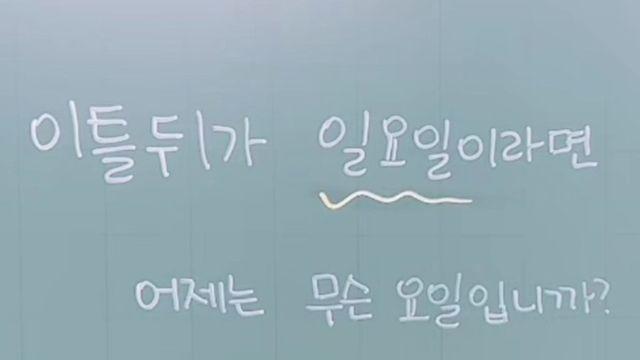 이틀뒤가 일요일이라면
어제는 무슨 요일입니까?